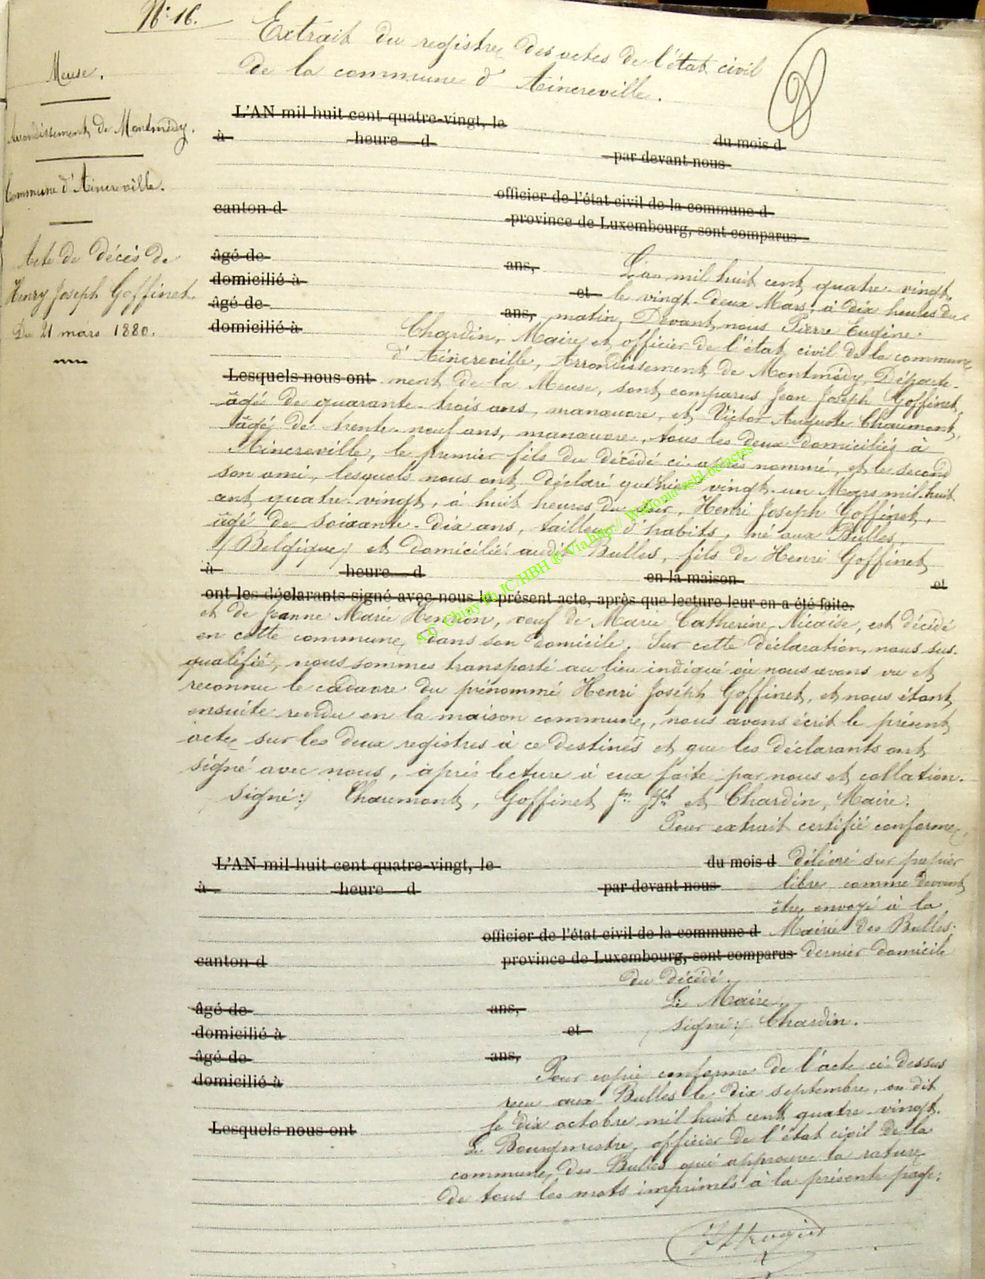 N° 16.
Extrait du registre des actes de l'état civil
de la commune d'Aincreville.
Meuse.
Arrondissement de Montmédy.
Commune d'Aincreville.
Acte de décès de
Henry Joseph Goffinet.
Du 21 mars 1880.
L'AN mil huit cent quatre-vingt, le
du mois d
à heure d
par devant nous
officier de l'état civil de la commune d
canton d
province de Luxembourg, sont comparus
âgé de ans, L'an mil huit cent quatre-vingt,
domicilié à et le vingt-deux Mars, à dix heures du
âgé de ans, matin, Devant nous Pierre Eugène
domicilié à Chardin, Maire et officier de l'état civil de la commune
d'Aincreville, Arrondissement de Montmédy, Départe-
Lesquels nous ont ment de la Meuse, sont comparus Jean Joseph Goffinet,
âgé de quarante-trois ans, manœuvre, et Victor Auguste Chaumont,
âgé de trente-neuf ans, manœuvre, tous les deux domiciliés à
Aincreville, le premier fils du décédé ci-après nommé, et le second
son ami, lesquels nous ont déclaré qu'hier vingt-un Mars mil huit
cent quatre-vingt, à huit heures du soir, Henri Joseph Goffinet,
âgé de soixante-dix ans, tailleur d'habits, né aux Bulles,
(Belgique) et domicilié audit Bulles, fils de Henri Goffinet
à heure d en la maison et
ont les déclarants signé avec nous le présent acte, après que lecture leur en a été faite.
et de Jeanne Marie Henrion, veuf de Marie Catherine Nicaise, est décédé
en cette commune, dans son domicile. Sur cette déclaration, nous sus-
qualifié, nous sommes transporté au lieu indiqué où nous avons vu et
reconnu le cadavre du prénommé Henri Joseph Goffinet, et nous étant
ensuite rendu en la maison commune, nous avons écrit le présent
acte sur les deux registres à ce destinés et que les déclarants ont
signé avec nous, après lecture à eux faite par nous et collation.
signé: Chaumont, Goffinet Jn Jph et Chardin, Maire.
Pour extrait certifié conforme,
L'AN mil huit cent quatre-vingt, le du mois d délivré sur papier
à heure d par devant nous libre comme devant
être envoyé à la
officier de l'état civil de la commune d Mairie des Bulles,
canton d province de Luxembourg, sont comparus dernier domicile
du décédé.
âgé de ans, Le Maire,
domicilié à et signé: Chardin.
âgé de ans, Pour copie conforme de l'acte ci-dessus
domicilié à reçu aux Bulles le dix septembre, on dit
Lesquels nous ont le dix octobre mil huit cent quatre-vingt.
Le Bourgmestre, officier de l'état civil de la
commune des Bulles qui approuve la rature
de tous les mots imprimés à la présente page.